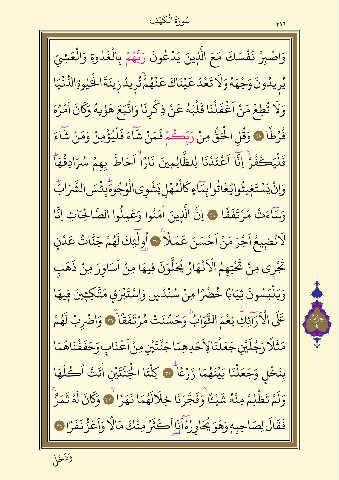 سُورَةُ الْكَهْفِ
٢٩٦
وَاصْبِرْ نَفْسَكَ مَعَ الَّذِينَ يَدْعُونَ رَبَّهُمْ بِالْغَدٰوةِ وَالْعَشِيِّ
يُرِيدُونَ وَجْهَهُ وَلَا تَعْدُ عَيْنَاكَ عَنْهُمْ تُرِيدُ زِينَةَ الْحَيٰوةِ الدُّنْيَا
وَلَا تُطِعْ مَنْ اَغْفَلْنَا قَلْبَهُ عَنْ ذِكْرِنَا وَاتَّبَعَ هَوٰيهُ وَكَانَ اَمْرُهُ
فُرُطًا ٢٨ وَقُلِ الْحَقُّ مِنْ رَبِّكُمْ فَمَنْ شَٓاءَ فَلْيُؤْمِنْ وَمَنْ شَٓاءَ
فَلْيَكْفُرْ اِنَّٓا اَعْتَدْنَا لِلظَّالِمِينَ نَارًا اَحَاطَ بِهِمْ سُرَادِقُهَا
وَاِنْ يَسْتَغِيثُوا يُغَاثُوا بِمَٓاءٍ كَالْمُهْلِ يَشْوِى الْوُجُوهَ بِئْسَ الشَّرَابُ
وَسَٓاءَتْ مُرْتَفَقًا ٢٩ اِنَّ الَّذِينَ اٰمَنُوا وَعَمِلُوا الصَّالِحَاتِ اِنَّا
لَا نُضِيعُ اَجْرَ مَنْ اَحْسَنَ عَمَلًا ٣٠ اُولٰٓئِكَ لَهُمْ جَنَّاتُ عَدْنٍ
تَجْرِى مِنْ تَحْتِهِمُ الْاَنْهَارُ يُحَلَّوْنَ فِيهَا مِنْ اَسَاوِرَ مِنْ ذَهَبٍ
وَيَلْبَسُونَ ثِيَابًا خُضْرًا مِنْ سُنْدُسٍ وَاِسْتَبْرَقٍ مُتَّكِـِٔينَ فِيهَا
عَلَى الْاَرَٓائِكِ نِعْمَ الثَّوَابُ وَحَسُنَتْ مُرْتَفَقًا ٣١ وَاضْرِبْ لَهُمْ
مَثَلًا رَجُلَيْنِ جَعَلْنَا لِاَحَدِهِمَا جَنَّتَيْنِ مِنْ اَعْنَابٍ وَحَفَفْنَاهُمَا
بِنَخْلٍ وَجَعَلْنَا بَيْنَهُمَا زَرْعًا ٣٢ كِلْتَا الْجَنَّتَيْنِ اٰتَتْ اُكُلَهَا
وَلَمْ تَظْلِمْ مِنْهُ شَيْـًٔا وَفَجَّرْنَا خِلَالَهُمَا نَهَرًا ٣٣ وَكَانَ لَهُ ثَمَرٌ
فَقَالَ لِصَاحِبِهِ وَهُوَ يُحَاوِرُهُ اَنَا۬ اَكْثَرُ مِنْكَ مَالًا وَاَعَزُّ نَفَرًا ٣٤
وَدَخَلَ